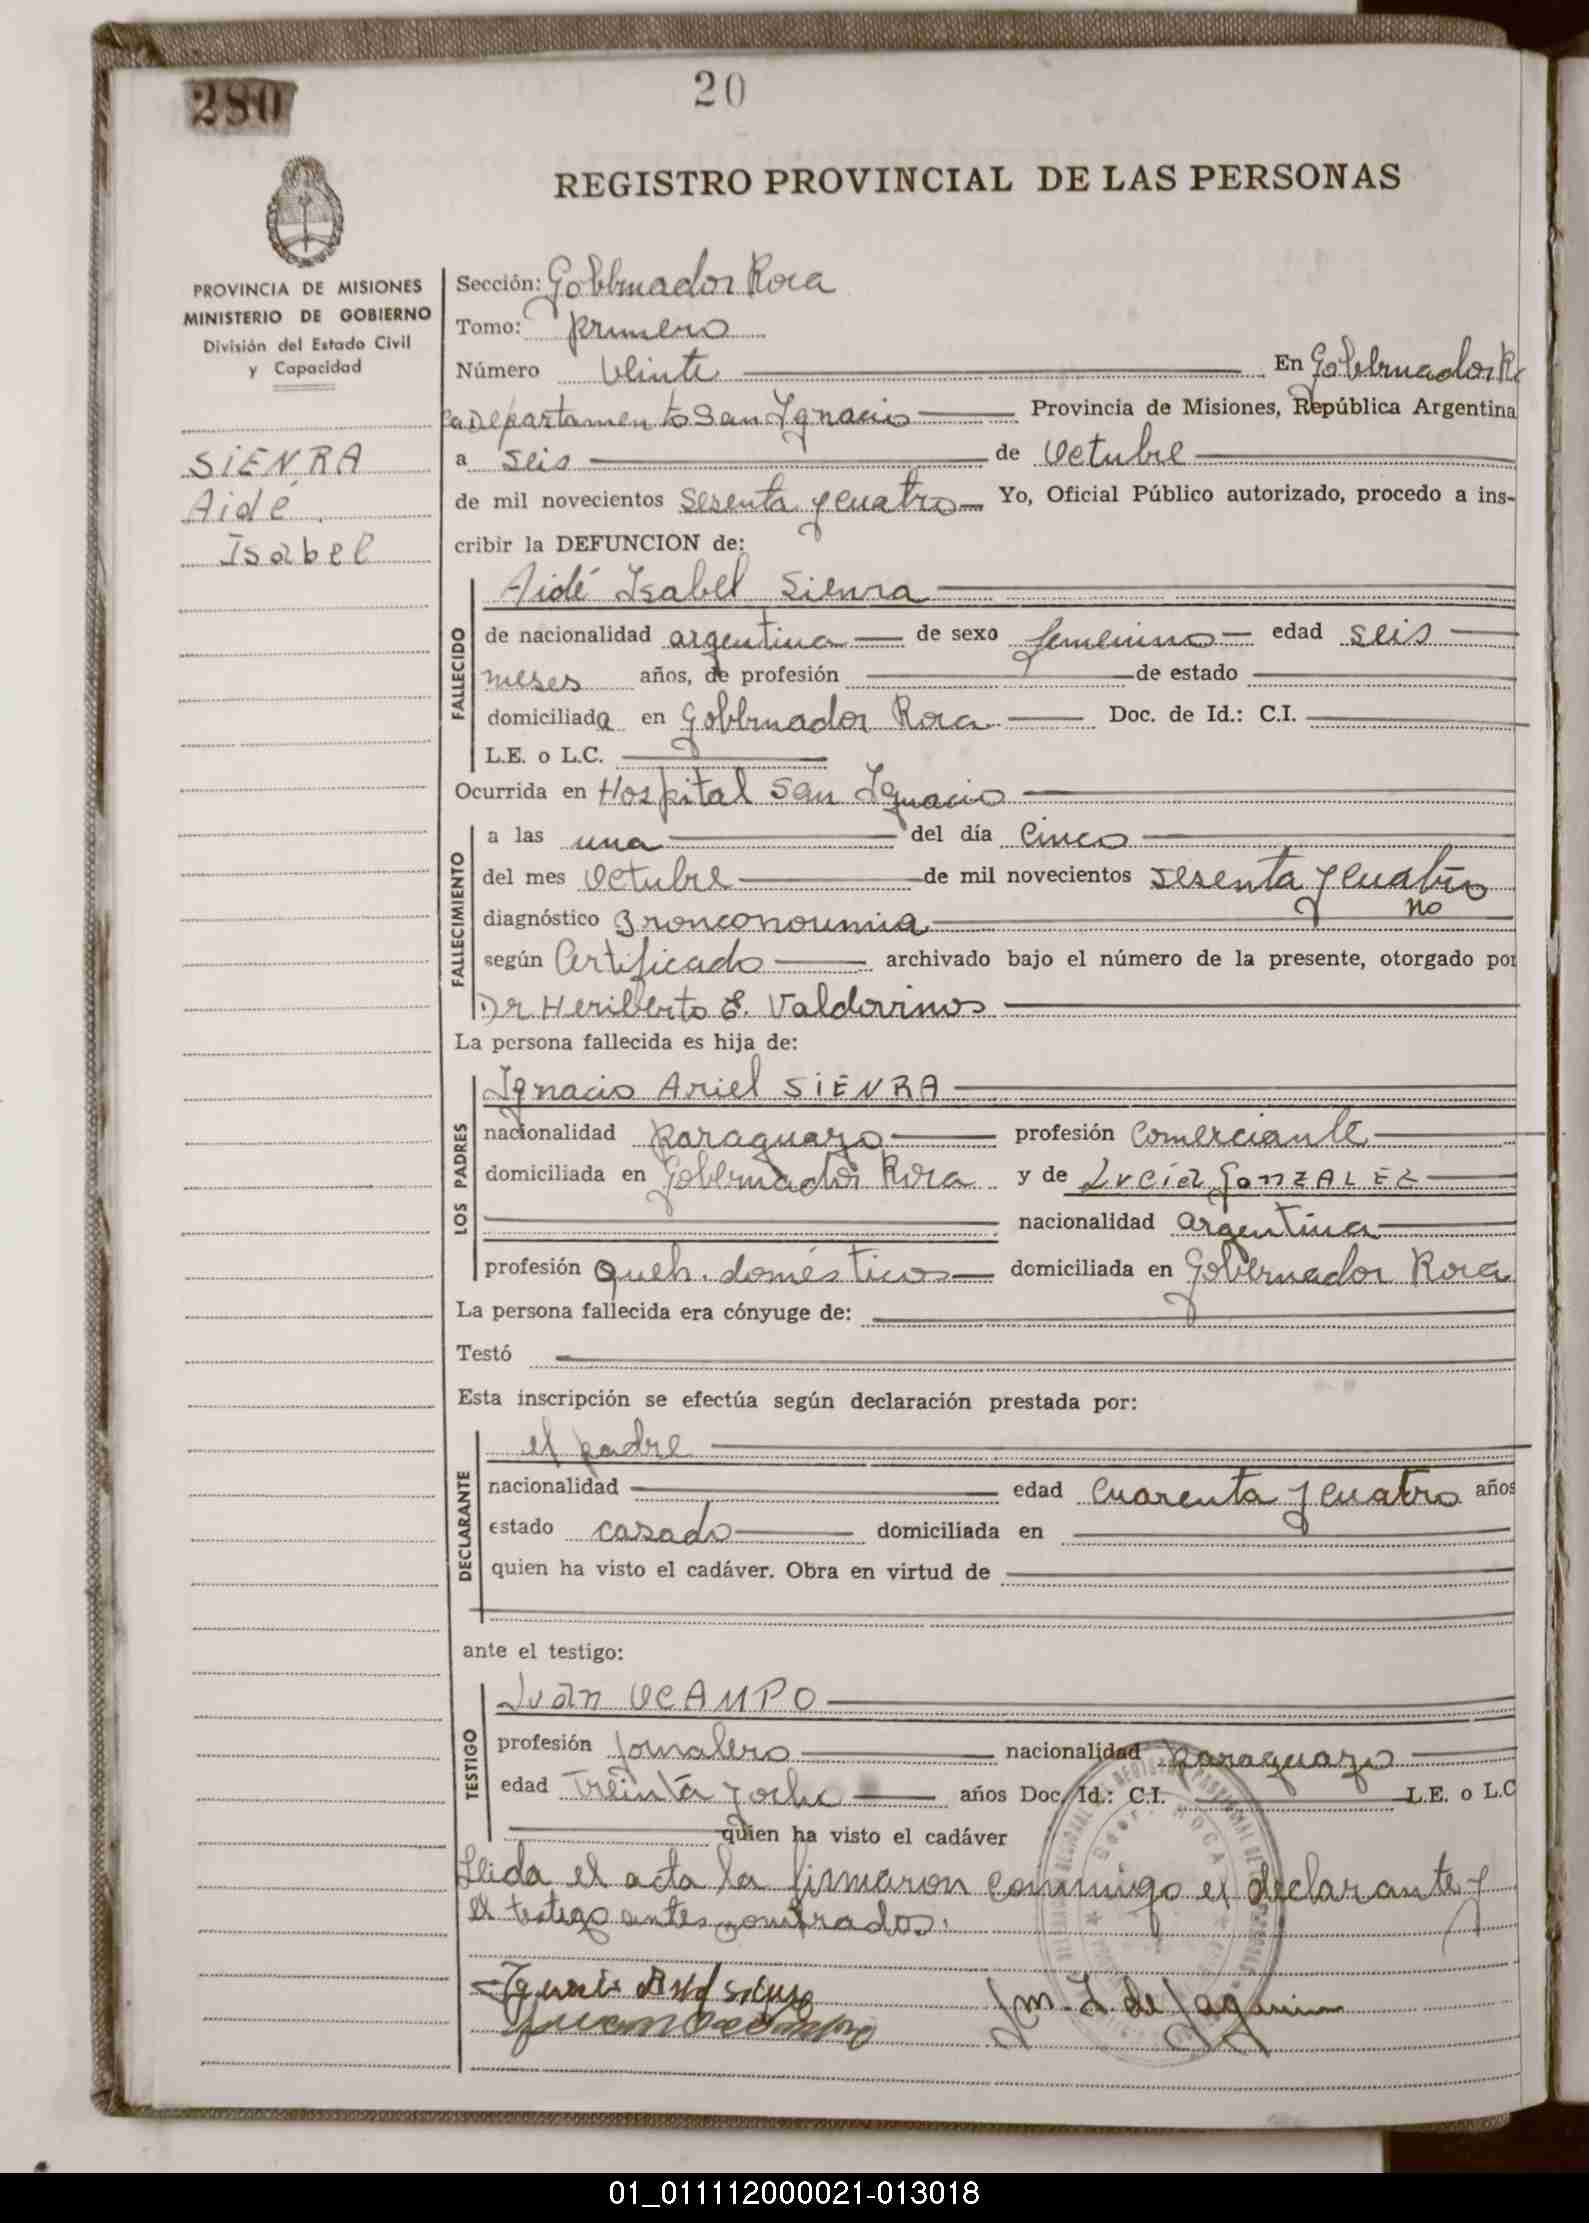 280
20
REGISTRO PROVINCIAL DE LAS PERSONAS
PROVINCIA DE MISIONES
MINISTERIO DE GOBIERNO
División del Estado Civil
y Capacidad
SIENRA
Aidé
Isabel
Sección: Gobernador Roca
Tomo: primero
Número veinte En Gobernador Ro
ca Departamento San Ignacio Provincia de Misiones, República Argentina
a seis de Octubre
de mil novecientos sesenta y cuatro Yo, Oficial Público autorizado, procedo a ins-
cribir la DEFUNCION de:
FALLECIDO
Aidé Isabel Sienra
de nacionalidad argentina de sexo femenino edad seis
meses años, de profesión de estado
domiciliada en Gobernador Roca Doc. de Id.: C.I.
L.E. o L.C.
Ocurrida en Hospital San Ignacio
FALLECIMIENTO
a las una del día cinco
del mes Octubre de mil novecientos sesenta y cuatro
no
diagnóstico Bronconoumia
según Certificado archivado bajo el número de la presente, otorgado por
Dr. Heriberto E. Valdovinos
La persona fallecida es hija de:
LOS PADRES
Ignacio Ariel SIENRA
nacionalidad paraguayo profesión comerciante
domiciliada en Gobernador Roca y de Lucía GONZALEZ
nacionalidad argentina
profesión Queh. domésticos domiciliada en Gobernador Roca
La persona fallecida era cónyuge de:
Testó
Esta inscripción se efectúa según declaración prestada por:
DECLARANTE
el padre
nacionalidad edad cuarenta y cuatro años
estado casado domiciliada en
quien ha visto el cadáver. Obra en virtud de
ante el testigo:
TESTIGO
Juan OCAMPO
profesión jornalero nacionalidad paraguayo
edad treinta y ocho años Doc. Id.: C.I. L.E. o L.C
quien ha visto el cadáver
Leida el acta la firmaron conmigo el declarante y
el testigo antes nombrados.
01_011112000021-013018